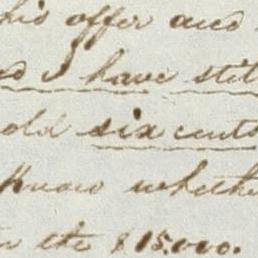 his offer and
and I have still
old six cents
Know whether
in the $15.000.